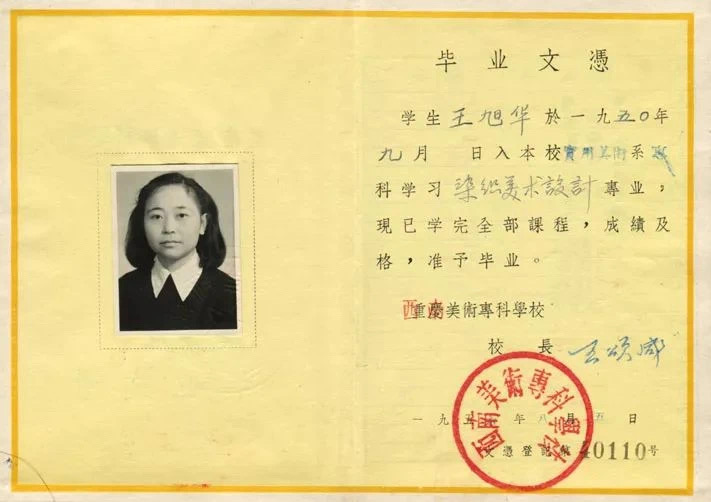 毕业文憑
学生王旭华於一九五〇年
九月 日入本校實用美術系
科学习染织美术設計專业，
現已学完全部課程，成績及
格，准予毕业。
西南美術專科學校
校長
一九五 年八月五日
文憑登記第40110号
西南美術專科學校